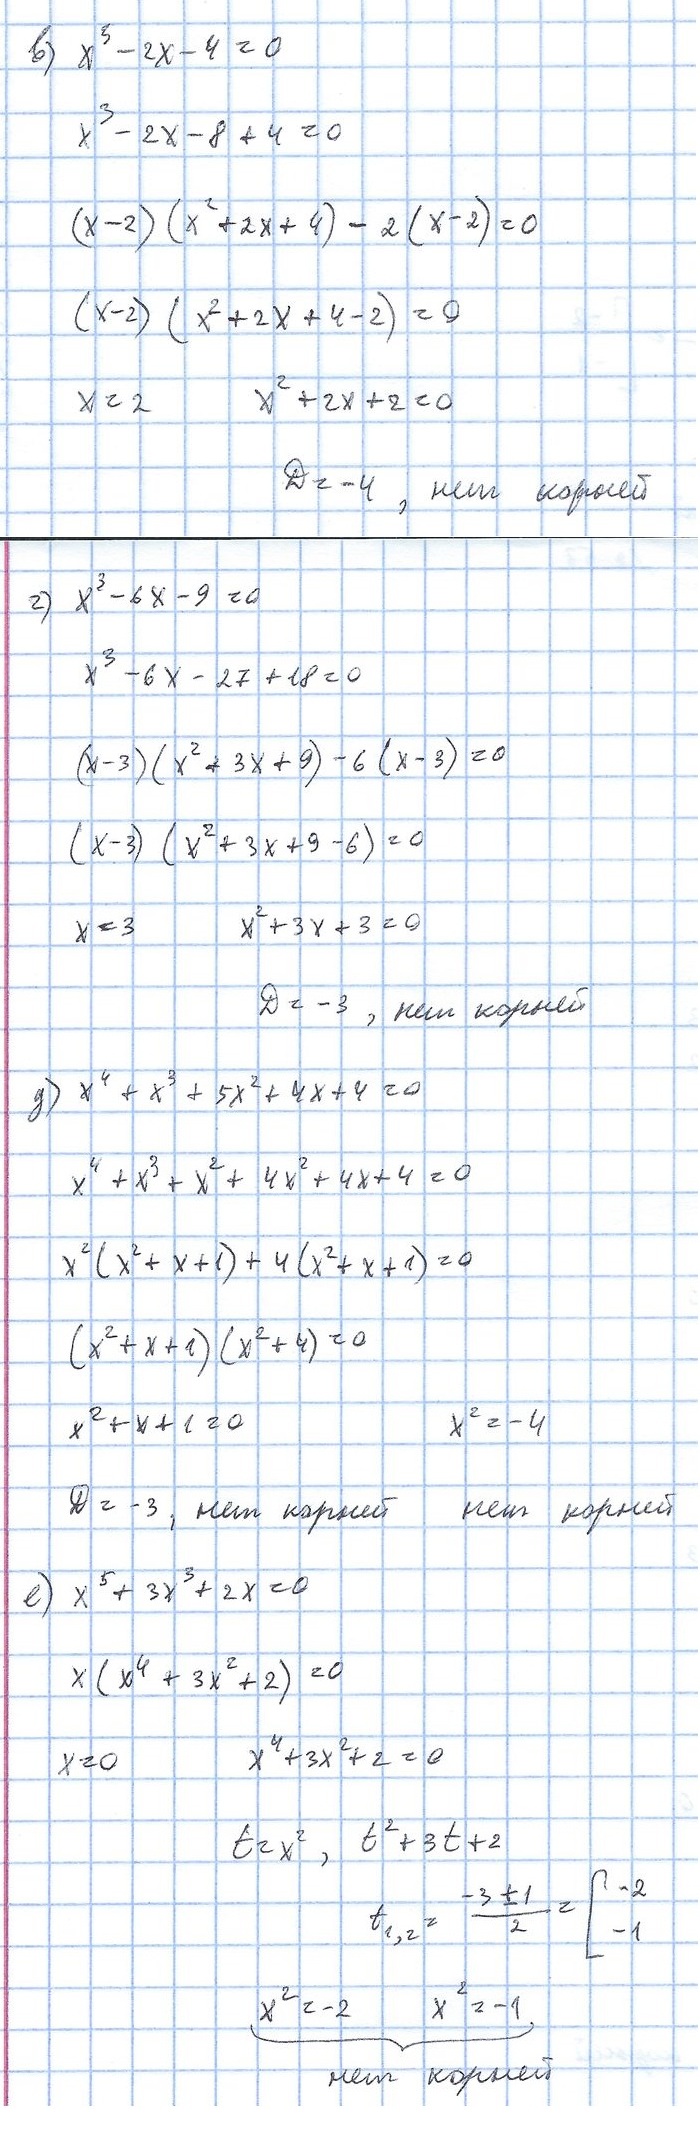 в) x³ - 2x - 4 = 0
x³ - 2x - 8 + 4 = 0
(x-2) (x² + 2x + 4) - 2 (x-2) = 0
(x-2) (x² + 2x + 4 - 2) = 0
x = 2 x² + 2x + 2 = 0
D = -4 , нет корней
г) x³ - 6x - 9 = 0
x³ - 6x - 27 + 18 = 0
(x-3) (x² + 3x + 9) - 6 (x-3) = 0
(x-3) (x² + 3x + 9 - 6) = 0
x = 3 x² + 3x + 3 = 0
D = -3 , нет корней
д) x⁴ + x³ + 5x² + 4x + 4 = 0
x⁴ + x³ + x² + 4x² + 4x + 4 = 0
x² (x² + x + 1) + 4 (x² + x + 1) = 0
(x² + x + 1) (x² + 4) = 0
x² + x + 1 = 0 x² = -4
D = -3, нет корней нет корней
е) x⁵ + 3x³ + 2x = 0
x (x⁴ + 3x² + 2) = 0
x = 0 x⁴ + 3x² + 2 = 0
t = x² , t² + 3t + 2
t₁,₂ = (-3 ± 1)/2 = [ -2
-1
x² = -2 x² = -1
нет корней